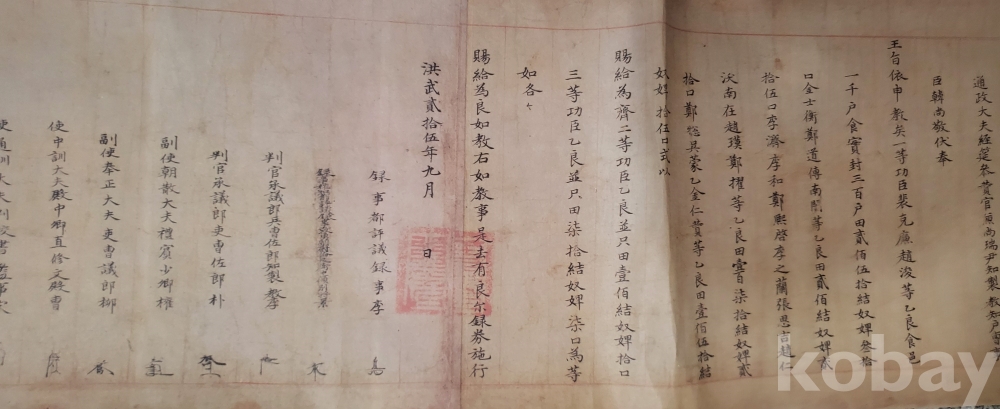 通政大夫經筵參賛官兼尚瑞尹知製教知戶曹
臣韓尚敬伏奉
王旨依申教矣一等功臣裴克廉趙浚等乙良食邑
一千戶食實封三百戶田貳佰伍拾結奴婢叁拾
口金士衡鄭道傳南誾等乙良田貳佰結奴婢貳
拾伍口李濟李和鄭熙啓李之蘭張思吉趙仁
沃南在趙璞鄭擢等乙良田壹百柒拾結奴婢貳
拾口鄭摠其蒙乙金仁賛等乙良田壹佰伍拾結
奴婢拾伍口式以
賜給為齊二等功臣乙良並只田壹佰結奴婢拾口
三等功臣乙良並只田柒拾結奴婢柒口為等
如各々
賜給為良如教右如教事是去有良尔錄券施行
洪武貳拾伍年九月 日
錄事都評議錄事李
判官承議郎兵曹佐郎知製教李
判官承議郎吏曹佐郎朴
副使朝散大夫禮賓少卿權
副使奉正大夫吏曹議郎柳
使中訓大夫殿中卿直修文殿曹
使通訓大夫判校書監事宋
kobay